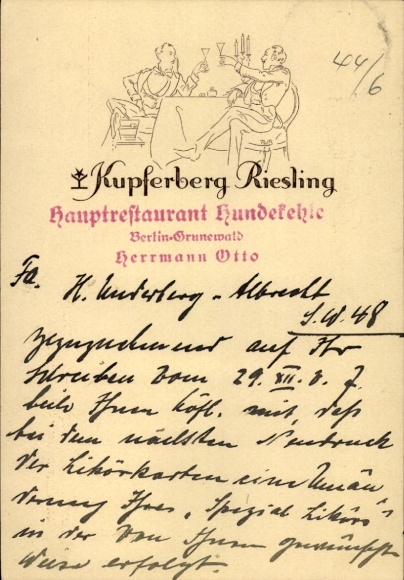 44/6
Kupferberg Riesling
Hauptrestaurant Hundekehle
Berlin-Grunewald
Herrmann Otto
Fa.
H. Underberg - Albrecht
S.W. 48
Bezugnehmend auf Ihr
Schreiben vom 29. XII. v. J.
teile Ihnen höfl. mit, daß
bei dem nächsten Neudruck
der Likörkarten eine Umän
derung Ihres „Spezial Likörs"
in der von Ihnen gewünschten
Weise erfolgt.